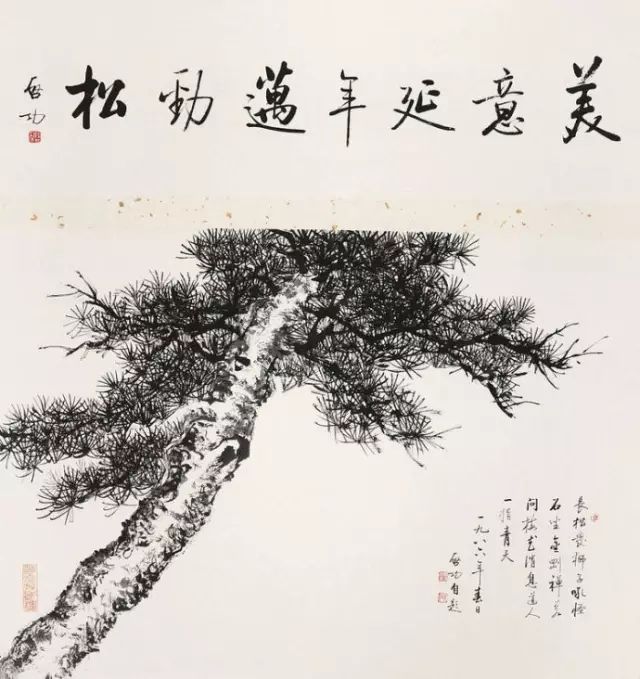 美意延年邁勁松
啓功
長松發獅子吼怪
石坐金剛禪若
問梅花消息道人
一指青天
一九八六年春日
啓功自題